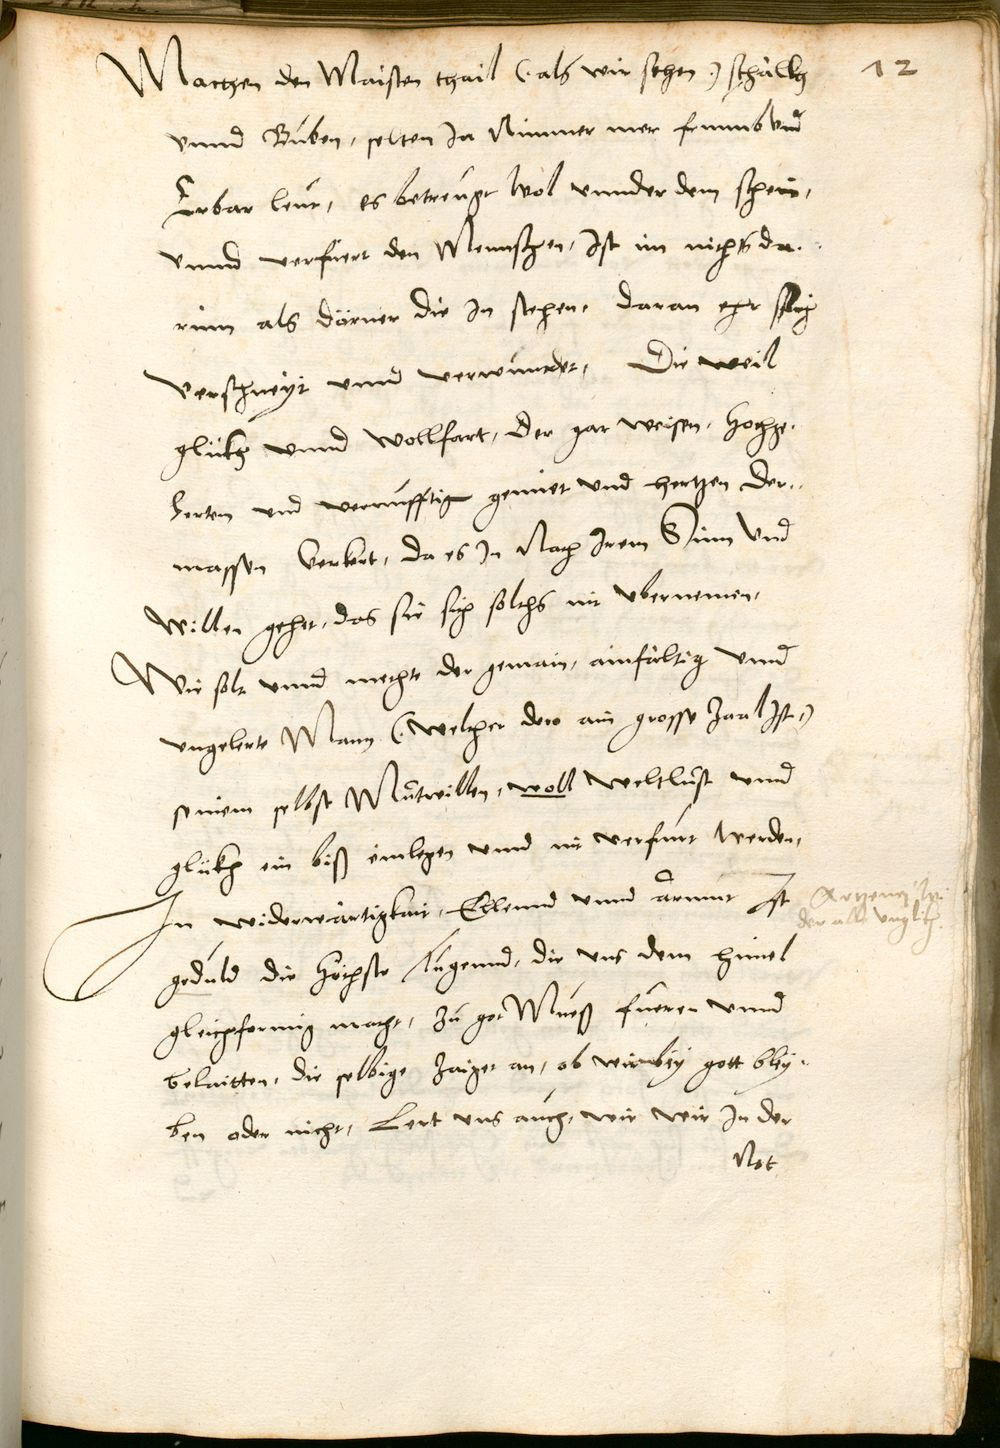 12
Machen den Maisten thail (: als wir sehen :) schälkh
vnnd Buben, selten Ja Nimmer mer frumb vnd
Erbar leut, es betreugt wol vnnder dem schein,
vnnd verfuert den Menschen, Ist im nichts da-
rinn als dörner die In stechen, daran er sich
verschneyt vnnd verwundet, Die weil
glükh vnnd wollfart, der gar weisen, Hochge-
lerten vnd vernufftigen gemiet vnd hertzen der-
massen verkert, da es In Nach Irem Sinn vnd
willen gehet, das sie sich solchs nit vbernemen,
Wie solt vnnd mechte der gemain, ainfältig vnnd
vngelerte Mann (: welcher dero ain grosse Zaal Ist :)
seinem selbst Mutwillen, woll weltlust vnnd
glükh ein biß einlegen vnnd nit verfuert werden,
In widerwärtigkait, Ellennd vnnd Armut Ist
gedult die Höchste tugennd, die vns dem himel
gleichformig macht, zu got Mueß fueren vnnd
belaitten, die selbige Zaiget an, ob wir bey gott bley-
ben oder nicht, Lert vns auch, wie wir In der
Not
Artzeney In
der all vnglükh.